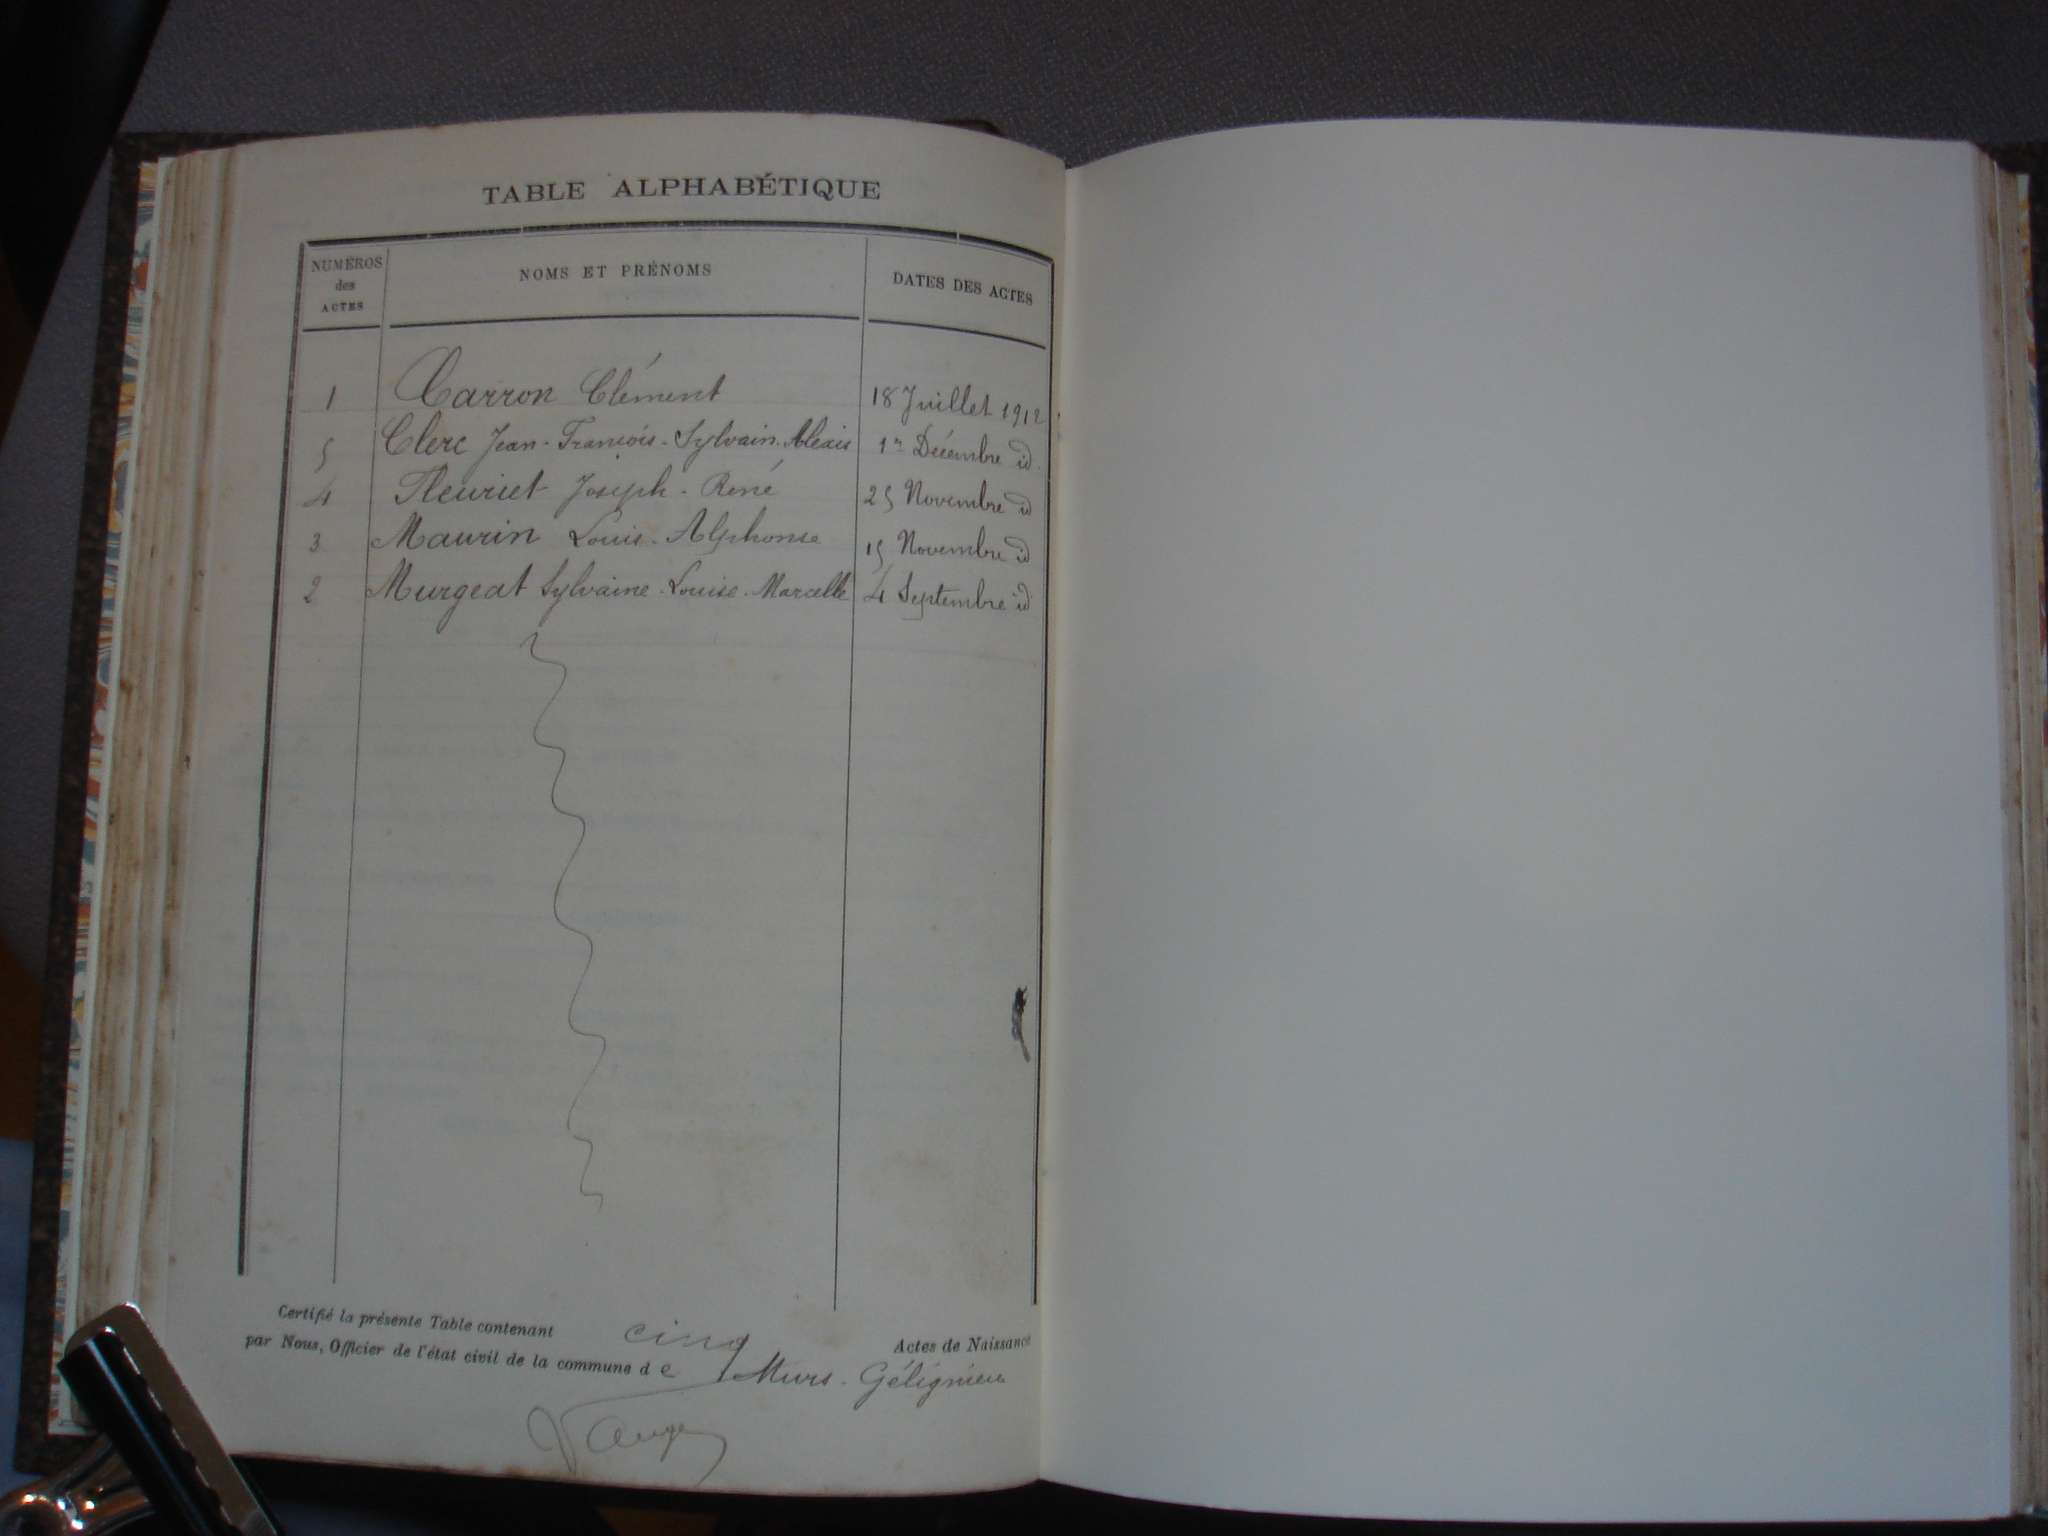 TABLE ALPHABÉTIQUE
NUMÉROS des ACTES NOMS ET PRÉNOMS DATES DES ACTES
1 Carron Clément 18 Juillet 1912
5 Clerc Jean-François-Sylvain-Alexis 1er Décembre id.
4 Fleuriet Joseph-René 25 Novembre id
3 Maurin Louis-Alphonse 15 Novembre id
2 Murgeat Sylvaine-Louise-Marcelle 4 Septembre id
Certifié la présente Table contenant cinq Actes de Naissance
par Nous, Officier de l'état civil de la commune de Murs-Gélignieu